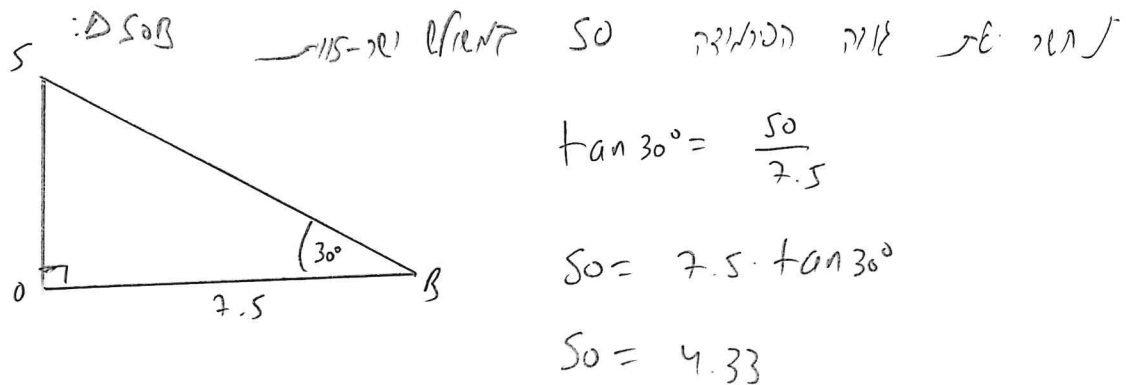 נחשב את גובה הפירמידה SO במשולש ישר-זווית ΔSOB:
S
tan 30° = SO / 7.5
30°
SO = 7.5 · tan 30°
O B
7.5
SO = 4.33